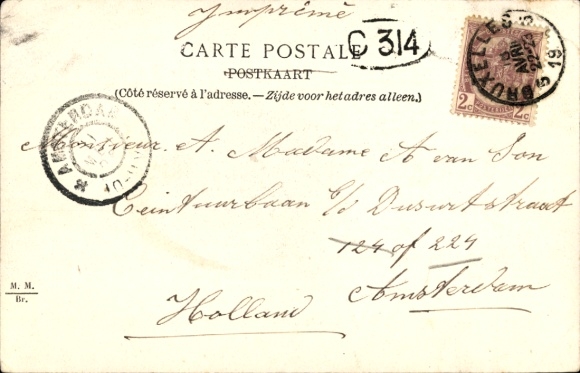 Imprimé
CARTE POSTALE
C 314
POSTKAART
(Côté réservé à l'adresse. — Zijde voor het adres alleen.)
BRUXELLES 5
19
2c 2c
AMSTERDAM
Monsieur A. Madame A van Son
Ceintuurbaan b/d Dusartstraat
124 of 224
Amsterdam
Holland
M. M.
Br.